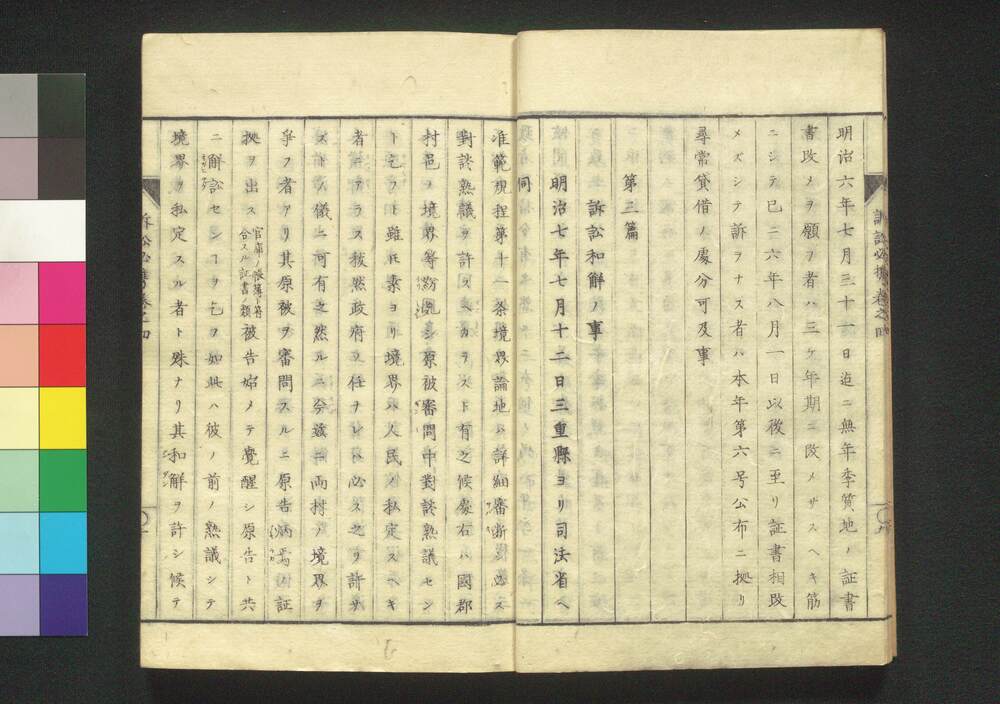 明治六年七月三十一日迄ニ無年季質地ノ証書
書改メヲ願フ者ハ三ケ年期ニ改メサスヘキ筋
ニシテ已ニ六年八月一日以後ニ至リ証書相改
メズシテ訴ヲナス者ハ本年第六号公布ニ拠リ
尋常貸借ノ處分可及事
第三篇
訴訟和解ノ事
明治七年七月十二日三重縣ヨリ司法省ヘ
同
准範規程第十一条境界論地ハ詳細審断ヲ必ス
對談熟議ヲ許スヘカラスト有之候處右ハ國郡
村邑ノ境界等紛混シ原被審問中對談熟議セン
ト乞フト雖𪜈素ヨリ境界ハ人民ノ私定スヘキ
者ニアラス秩然政府ノ任ナレハ必ス之ヲ許サ
ストノ儀ニ可有之然ルニ兮茲ニ両村ノ境界ヲ
爭フ者アリ其原被ヲ審問スルニ原告ハ証
拠ヲ出ス官庫ノ帳簿ト符合スル証書ノ類被告始メテ覺醒シ原告ト共
ニ解訟センヿヲ乞フ如此ハ彼ノ前ノ熟議シテ
境界ヲ私定スル者ト殊ナリ其和解ヲ許シ候テ
訴訟必携巻之四